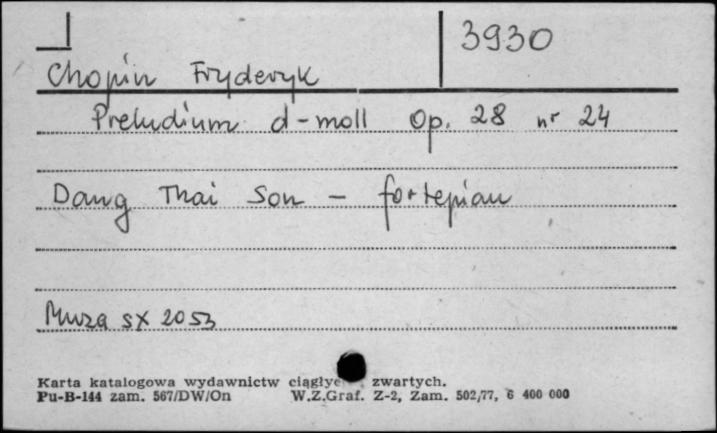 3930
Chopin Fryderyk
Preludium d-moll Op. 28 nr 24
Dang Thai Son - fortepian
Muza SX 2053
Karta katalogowa wydawnictw zwartych.
Pu-B-144 zam. 567/DW/On W.Z.Graf. Z-2, Zam. 502/77, 6 400 000